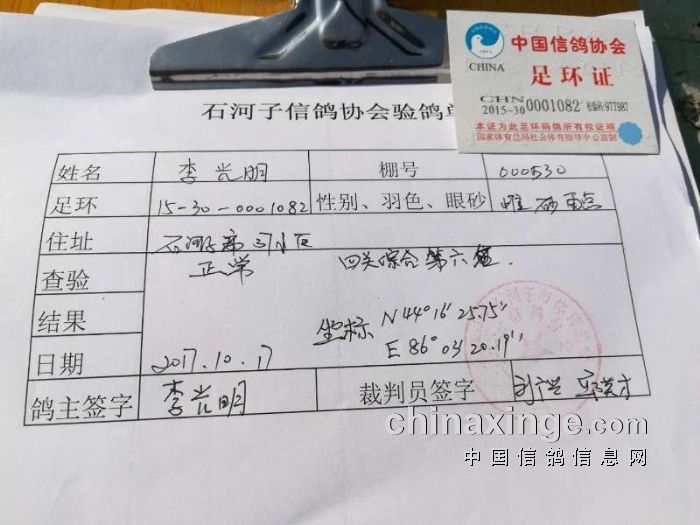 中国信鸽协会
CHINA
足环证
CHN
2015-30 0001082
本证为此足环码鸽所有权证明
国家体育总局社会体育指导中心监制
石河子信鸽协会验鸽单
姓名 李光明 棚号 000530
足环 15-30-0001082 性别、羽色、眼砂 雌 砂 雨点
住址 石河子市
查验 正常 四关综合第六名.
结果 坐标 N44°16'25.75"
E 86°03 20.19"
日期 2017.10.17
鸽主签字 李光明 裁判员签字
chinaxinge.com
中国信鸽信息网